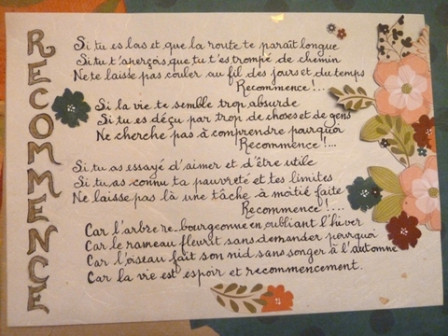 RECOMMENCE
Si tu es las et que la route te paraît longue
Si tu t'aperçois que tu t'es trompé de chemin
Ne te laisse pas couler au fil des jours et du temps
Recommence !...
Si la vie te semble trop absurde
Si tu es déçu par trop de choses et de gens
Ne cherche pas à comprendre pourquoi
Recommence !...
Si tu as essayé d'aimer et d'être utile
Si tu as connu ta pauvreté et tes limites
Ne laisse pas là une tâche à moitié faite
Recommence !....
Car l'arbre re-bourgeonne en oubliant l'hiver
Car le rameau fleurit sans demander pourquoi
Car l'oiseau fait son nid sans songer à l'automne
Car la vie est espoir et recommencement.